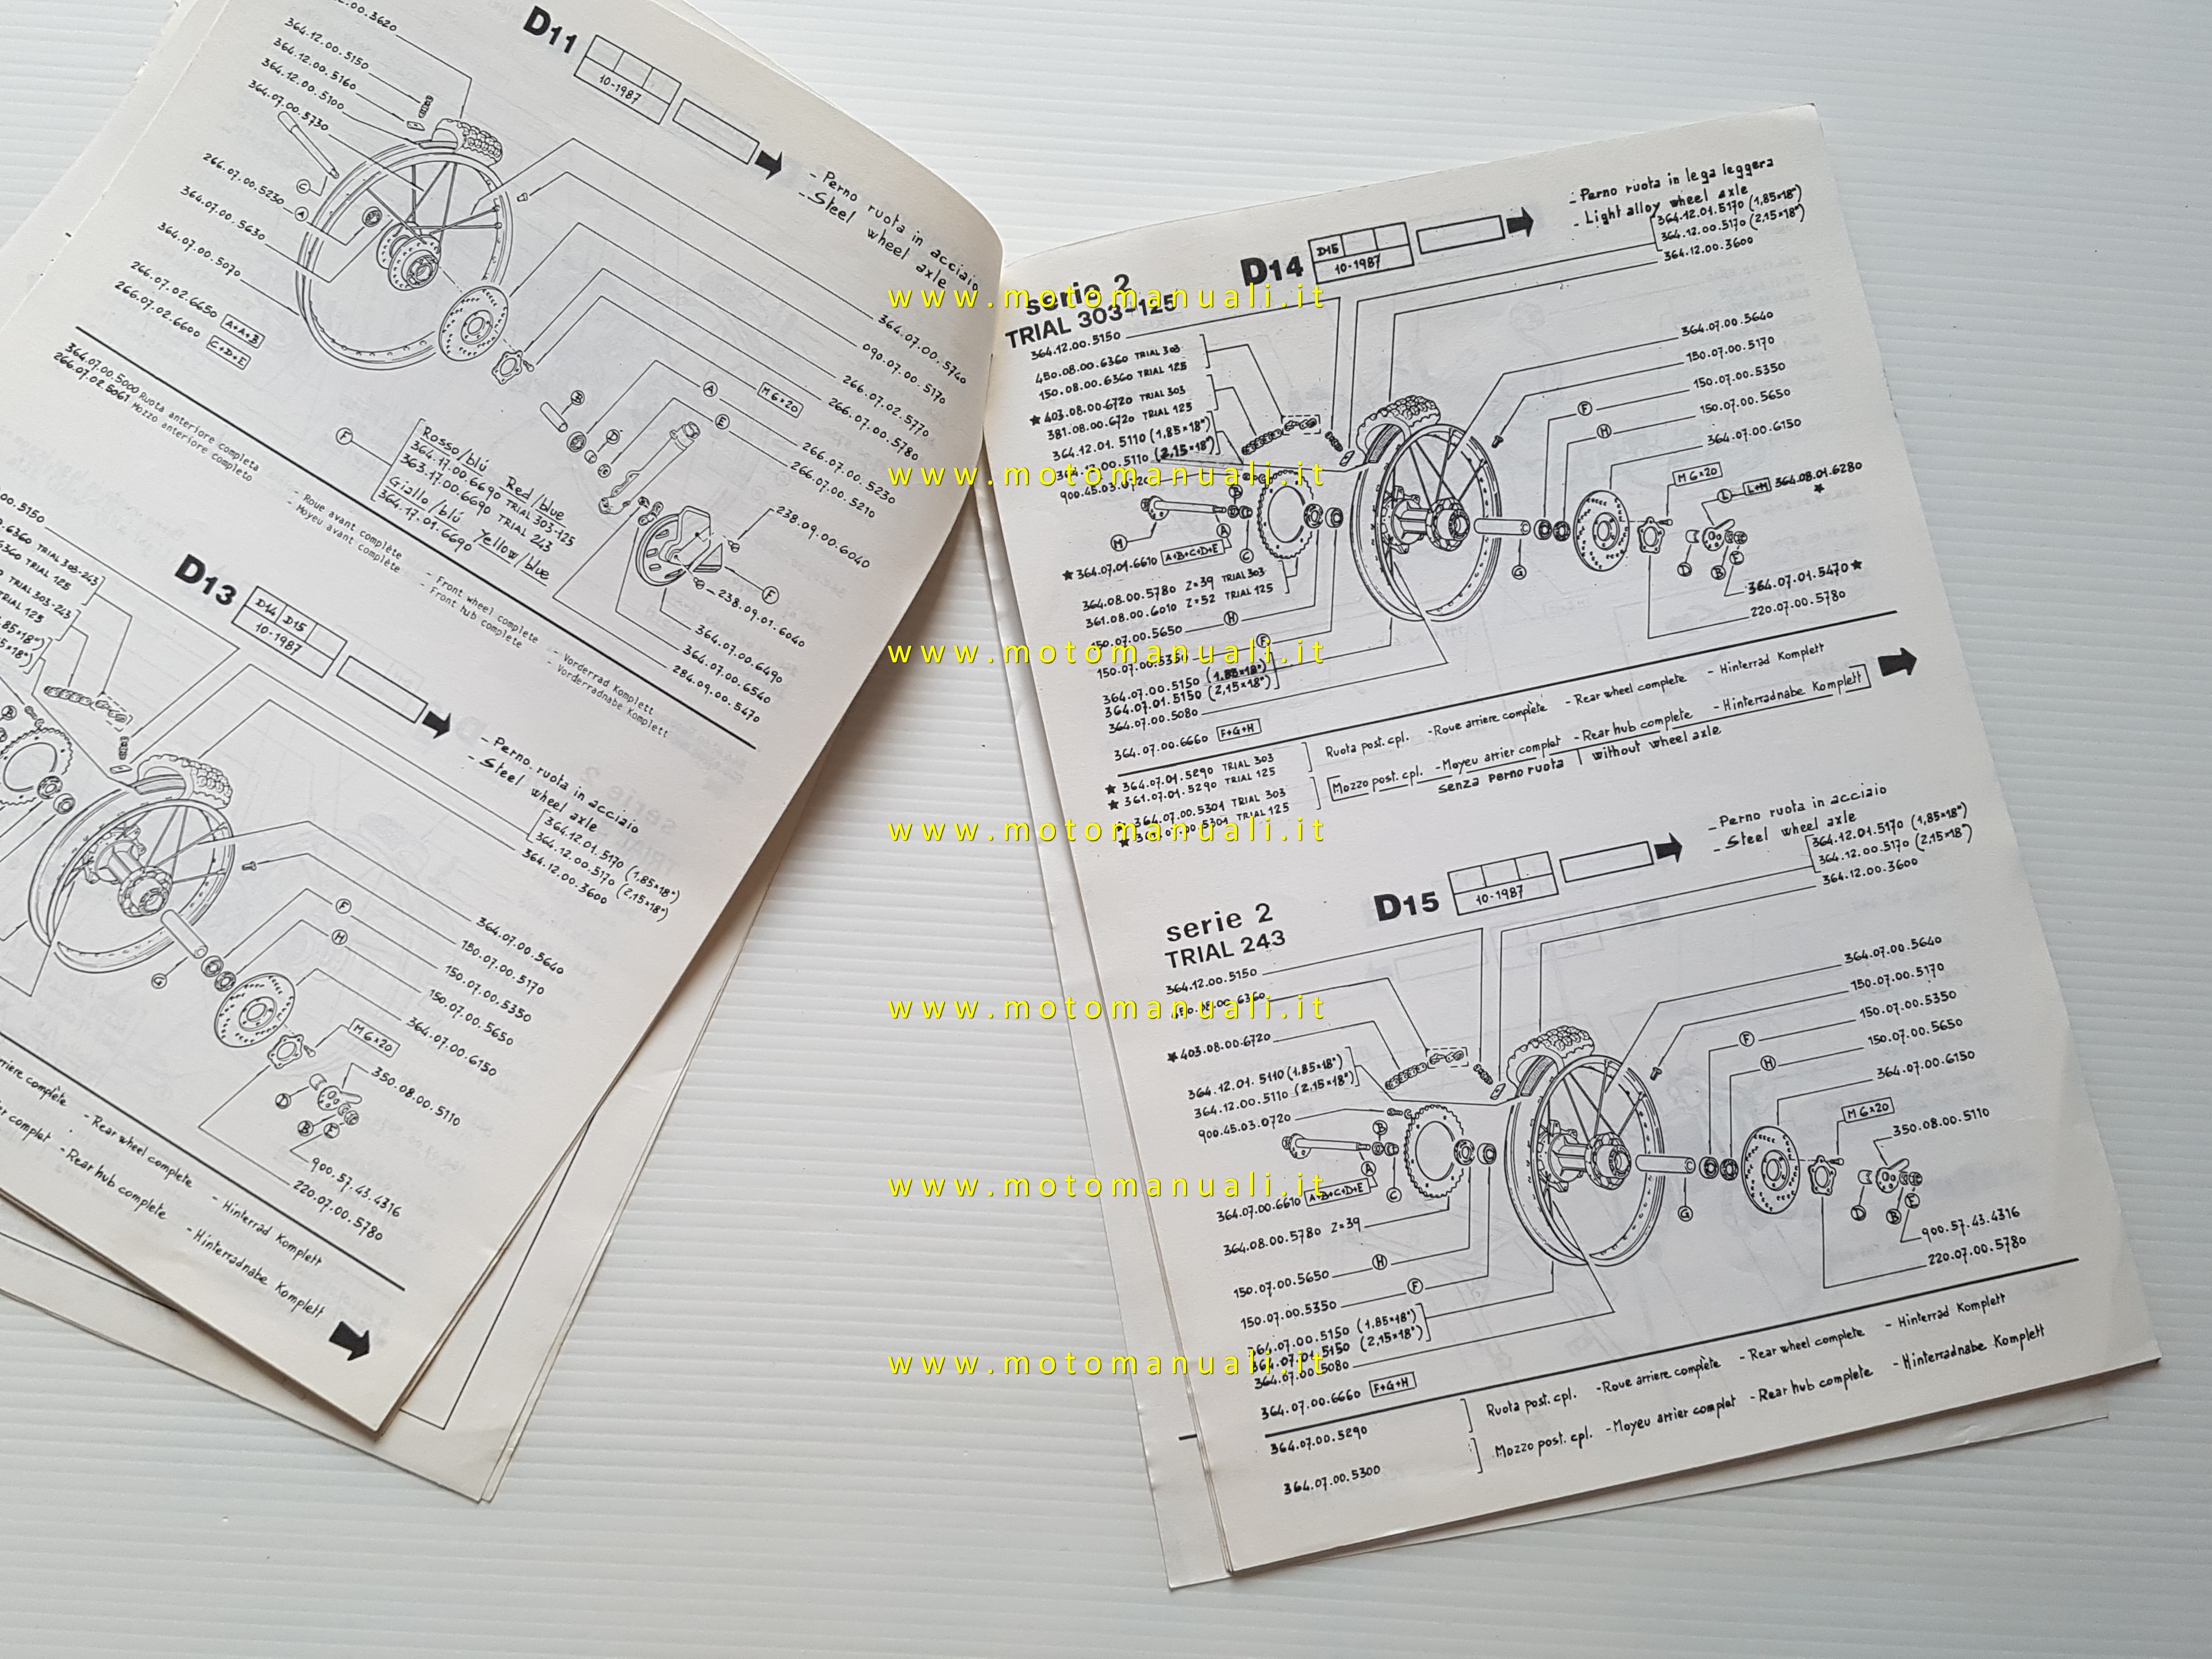 .00.3620
364.12.00.5150
364.12.00.5160
364.12.00.5100
364.07.00.5730
C
266.07.00.5230
A
364.07.00.5630
364.07.00.5070
266.07.02.6650 A+A+B
266.07.02.6600 C+D+E
D11
10-1987
- Perno ruota in acciaio
- Steel wheel axle
364.07.00.5740
090.07.00.5170
266.07.02.5770
266.07.00.5780
M6x20
266.07.00.5230
266.07.00.5210
238.09.00.6040
238.09.01.6040
364.07.00.6490
364.07.00.6540
284.09.00.5470
A
B
D
E
C
F
F
Rosso/blú Red/blue
364.17.00.6690 TRIAL 303-125
363.17.00.6690 TRIAL 243
Giallo/blú Yellow/blue
364.17.01.6690
364.07.00.5000 Ruota anteriore completa - Roue avant complète - Front wheel complete - Vorderrad Komplett
266.07.02.5061 Mozzo anteriore completo - Moyeu avant complète - Front hub complete - Vorderradnabe Komplett
5150
6360 TRIAL 303-243
6360 TRIAL 125
TRIAL 303-243
TRIAL 125
D13
D14 D15
10-1987
- Perno ruota in acciaio
- Steel wheel axle
364.12.01.5170 (1,85x18")
364.12.00.5170 (2,15x18")
364.12.00.3600
364.07.00.5640
150.07.00.5170
150.07.00.5350
150.07.00.5650
364.07.00.6150
F
H
G
M6x20
350.08.00.5110
D
B
E
900.57.43.4316
220.07.00.5780
arriere complète - Rear wheel complete - Hinterrad Komplett
arrier complet - Rear hub complete - Hinterradnabe Komplett
serie 2
TRIAL 303-125
D14
D15
10-1987
- Perno ruota in lega leggera
- Light alloy wheel axle
364.12.01.5170 (1,85x18")
364.12.00.5170 (2,15x18")
364.12.00.3600
364.12.00.5150
450.08.00.6360 TRIAL 303
150.08.00.6360 TRIAL 125
★ 403.08.00.6720 TRIAL 303
381.08.00.6720 TRIAL 125
364.12.01.5110 (1,85x18")
364.12.00.5110 (2,15x18")
900.45.03.0720
M
B
A
C
★ 364.07.01.6610 A+B+C+D+E
364.08.00.5780 Z=39 TRIAL 303
361.08.00.6010 Z=52 TRIAL 125
150.07.00.5650 H
150.07.00.5350 F
364.07.00.5150 (1,85x18")
364.07.01.5150 (2,15x18")
364.07.00.5080
364.07.00.6660 F+G+H
364.07.00.5640
150.07.00.5170
150.07.00.5350
F
150.07.00.5650
H
364.07.00.6150
M6x20
L L+M 364.08.01.6280 ★
G
D
B
E
364.07.01.5470 ★
220.07.00.5780
★ 364.07.01.5290 TRIAL 303
★ 361.07.01.5290 TRIAL 125
Ruota post. cpl. - Roue arriere complète - Rear wheel complete - Hinterrad Komplett
364.07.00.5301 TRIAL 303
★ 5301 TRIAL 125
Mozzo post. cpl. - Moyeu arrier complet - Rear hub complete - Hinterradnabe Komplett
senza perno ruota | without wheel axle
serie 2
TRIAL 243
D15
10-1987
- Perno ruota in acciaio
- Steel wheel axle
364.12.01.5170 (1,85x18")
364.12.00.5170 (2,15x18")
364.12.00.3600
364.12.00.5150
6360
★ 403.08.00.6720
364.12.01.5110 (1,85x18")
364.12.00.5110 (2,15x18")
900.45.03.0720
B
A
C
364.07.00.6610 A+B+C+D+E
364.08.00.5780 Z=39
150.07.00.5650 H
150.07.00.5350 F
364.07.00.5150 (1,85x18")
364.07.01.5150 (2,15x18")
364.07.00.5080
364.07.00.6660 F+G+H
364.07.00.5640
150.07.00.5170
150.07.00.5350
F
150.07.00.5650
H
364.07.00.6150
M6x20
350.08.00.5110
G
D
B
E
900.57.43.4316
220.07.00.5780
364.07.00.5290 Ruota post. cpl. - Roue arriere complète - Rear wheel complete - Hinterrad Komplett
364.07.00.5300 Mozzo post. cpl. - Moyeu arrier complet - Rear hub complete - Hinterradnabe Komplett
www.motomanuali.it
www.motomanuali.it
www.motomanuali.it
www.motomanuali.it
www.motomanuali.it
www.motomanuali.it
www.motomanuali.it